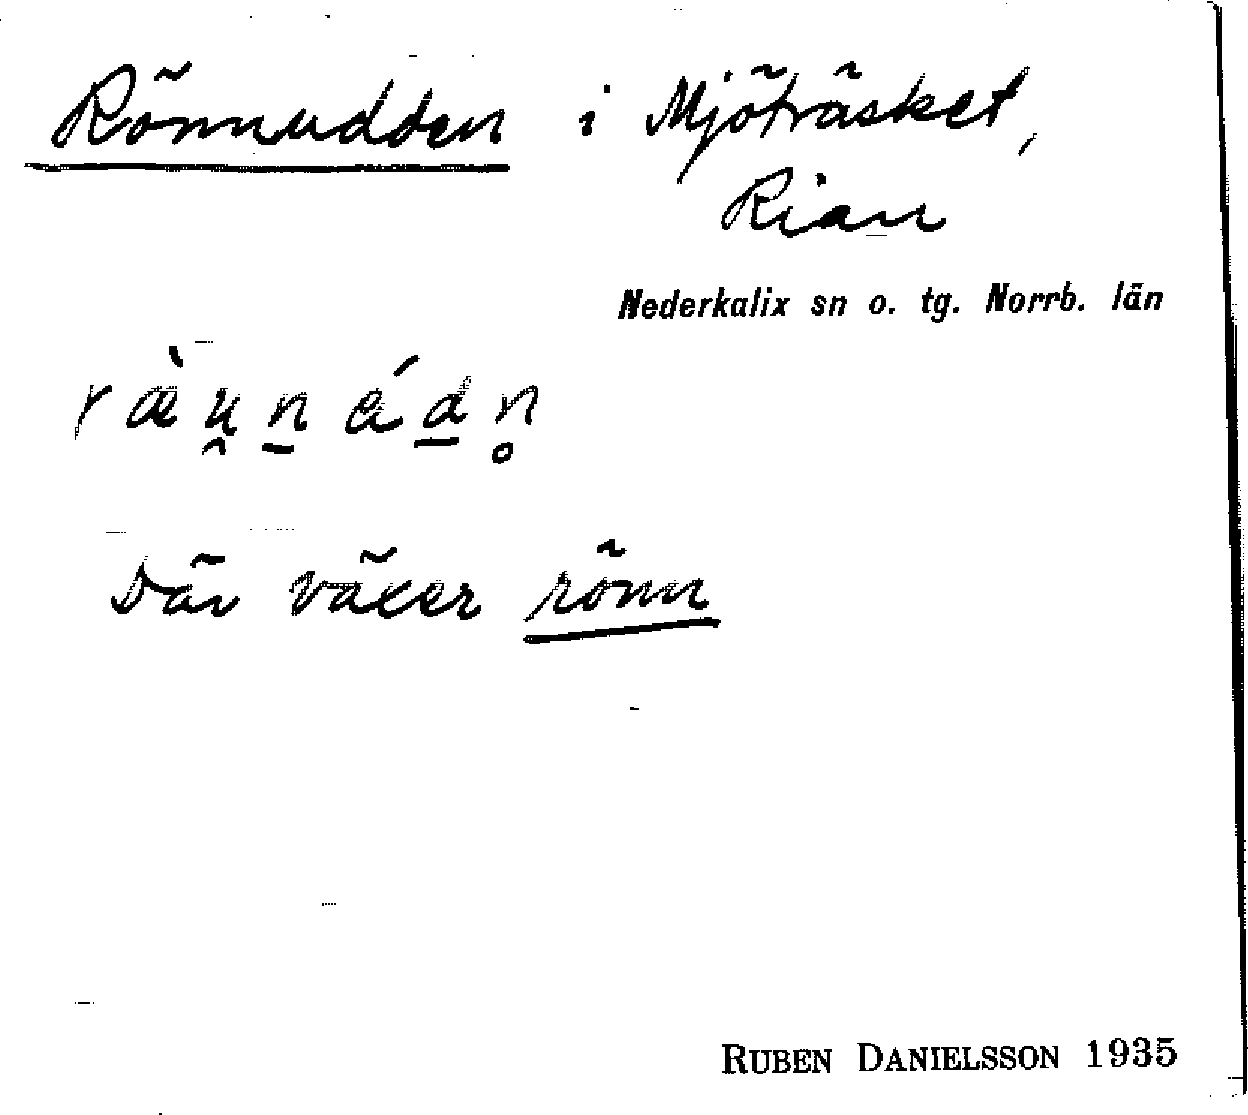 Rönnudden i Mjöträsket,
Rian
Nederkalix sn o. tg. Norrb. län
ræ̀u̯n̲ ád̲n̥
Där växer rönn
RUBEN DANIELSSON 1935